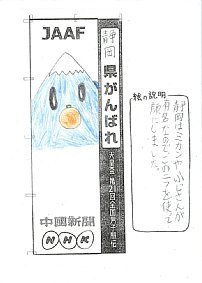 JAAF
静岡県がんばれ
天皇盃 第21回全国男子駅伝
中國新聞
NHK
絵の説明
静岡はミカンやふじさんが
有名なのでこの二つを使って
顔にしました。